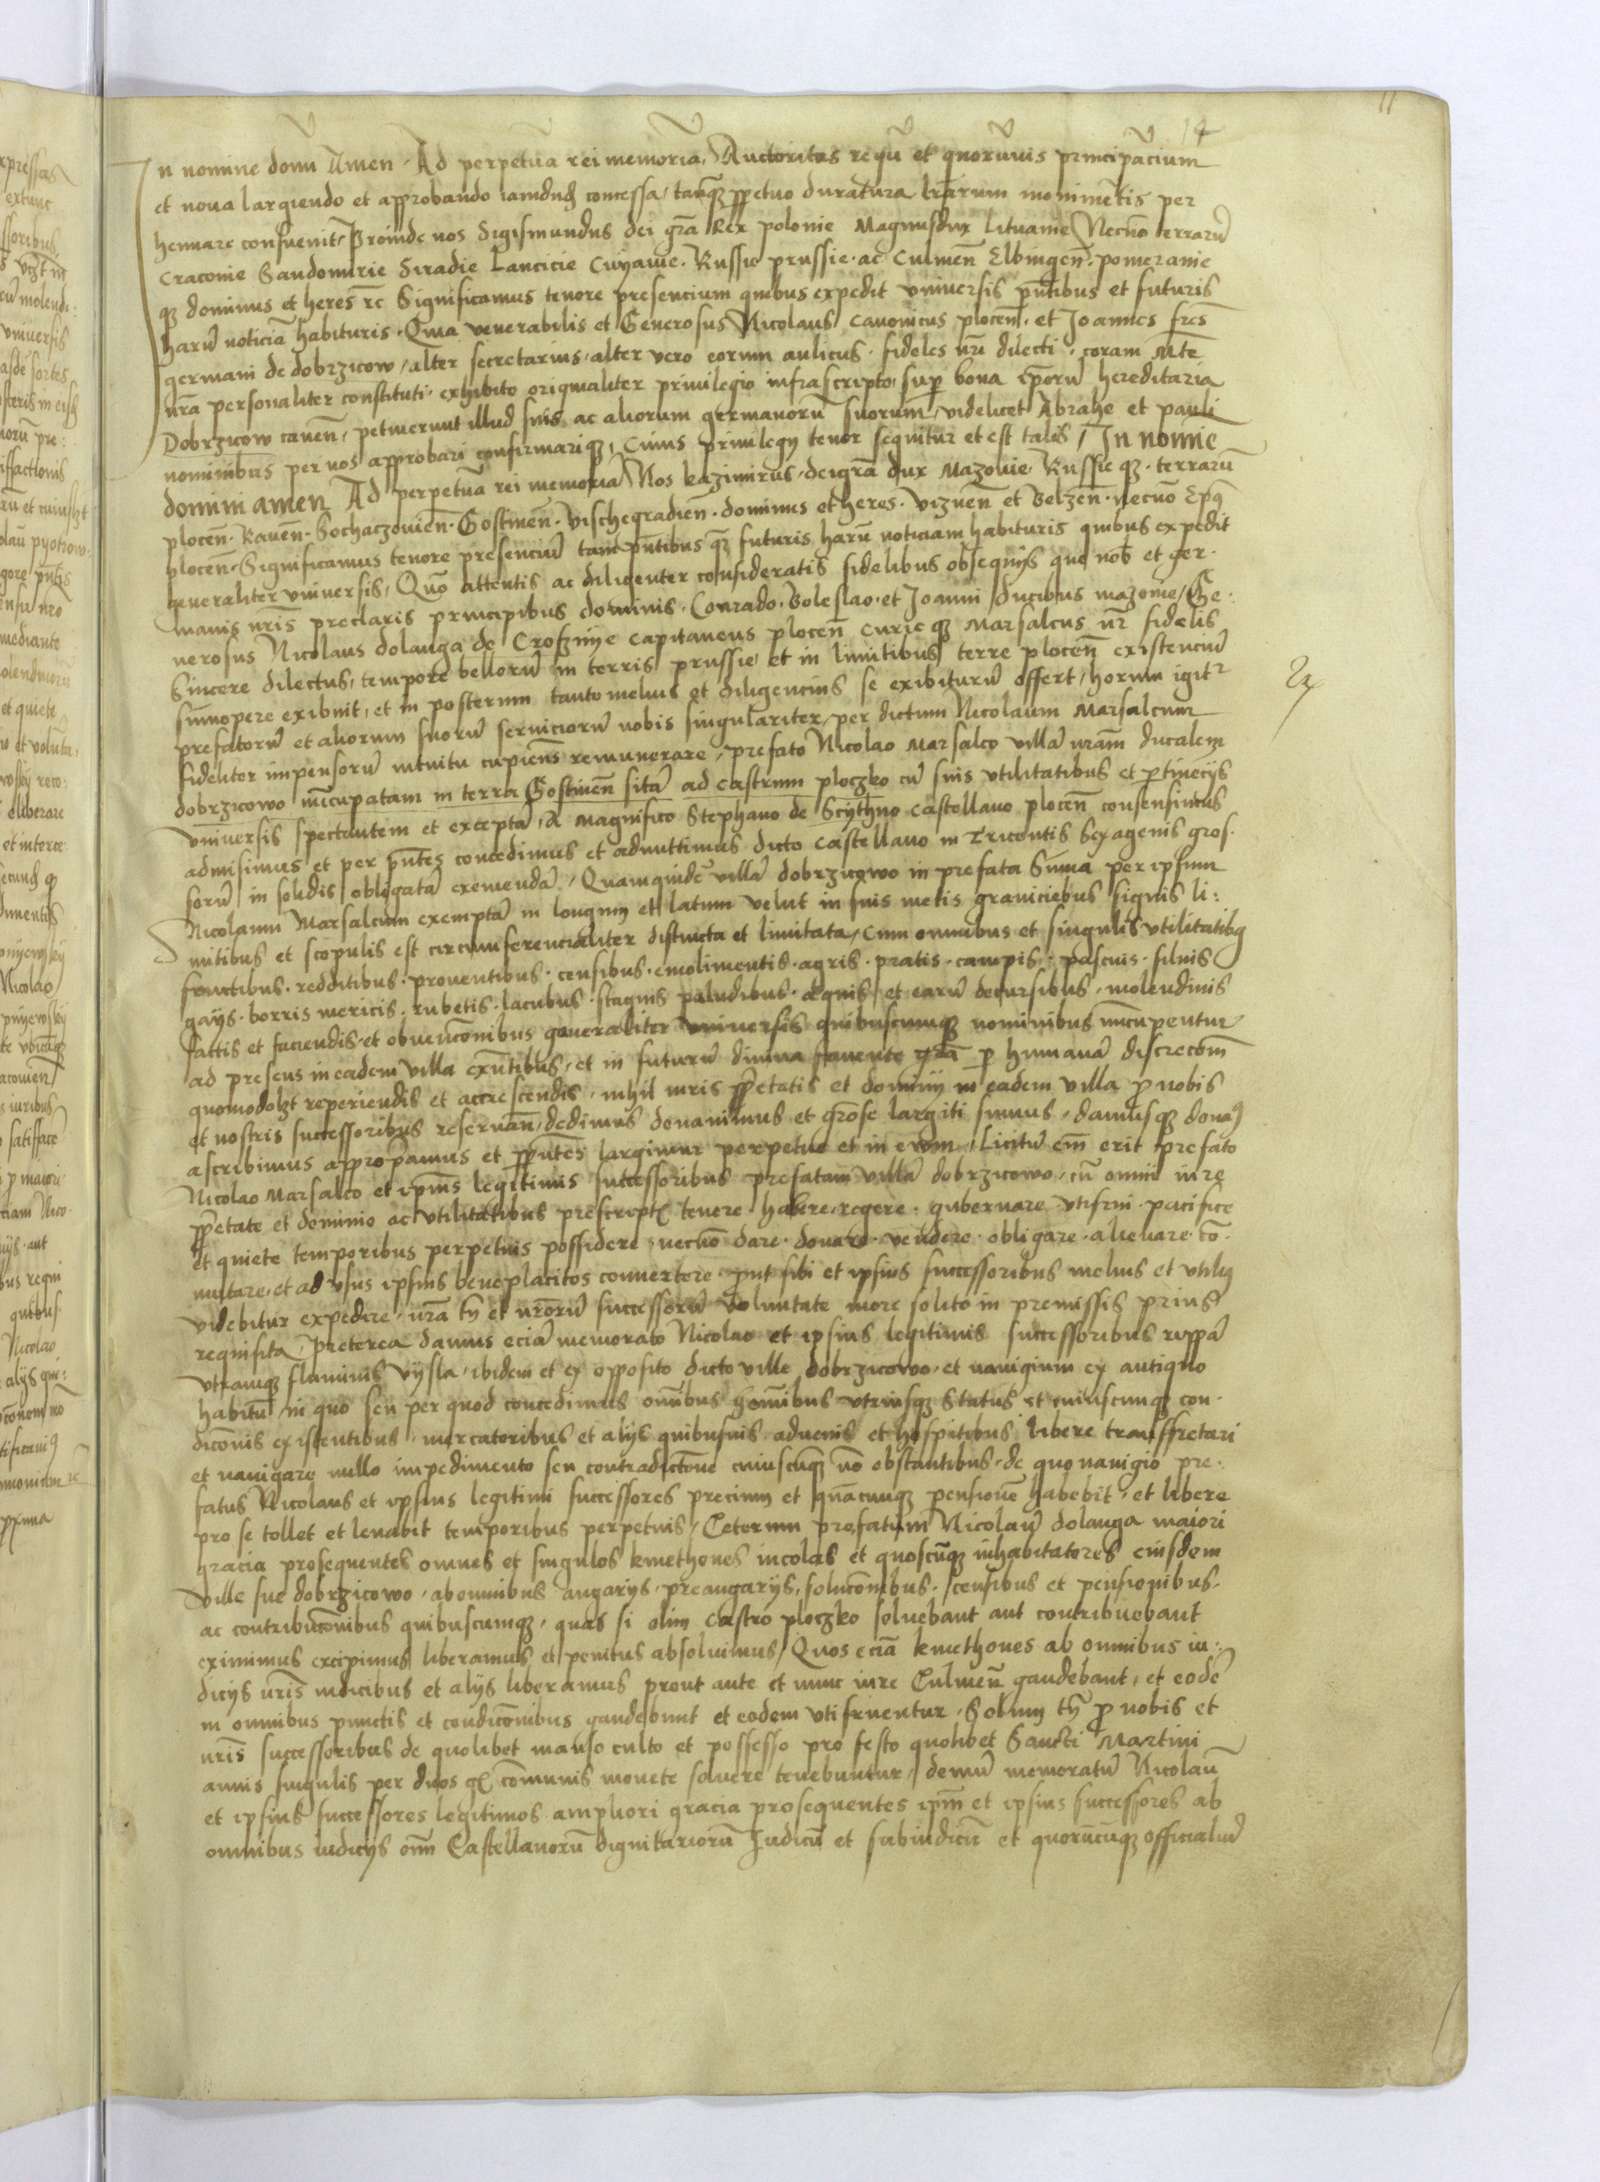 11
14
In nomine domi Amen. Ad perpetuā rei memoriā, Auctoritas regū et quorumvis principacium
et nova largiendo et approbando iamdudū concessa, tanq̄ ppetuo duratura lrārum monimētis per
hennare consuevit, Proinde nos Sigismundus dei grā Rex polonie Magnusdux Lituanie Necnō terrarū
Cracovie Sandomirie Siradie Lancicie Cuyavie. Russie prussie. ac Culmeñ Elbingeñ. pomeranie
q̄ dominus et heres rc̄ Significamus tenore presencium quibus expedit universis pñtibus et futuris
harū noticiā habituris. Quia venerabilis et Generosus Nicolaus Canonicus ploceñ. et Joannes frēs
germani de dobrzicow, alter secretarius, alter vero eorum aulicus. fideles nri dilecti. coram Mte
nrā personaliter constituti. exhibito originaliter privilegio infrascripto, sup bona ipsorū hereditaria
Dobrzicow caveñ, petiverunt illud suis ac aliorum germanorū suorum, videlicet Abrahe et pauli
nominibus per nos approbari confirmariq̄, Cuius privilegy tenor sequitur et est talis, In nomie
domini amen Ad perpetuā rei memoriā Nos kazimirus. deigrā dux Mazovie Russie q̄. terrarū
ploceñ. Raveñ. Sochaczovieñ. Gostineñ. Vischegradieñ. dominus et heres. Vizneñ et Belzeñ. necnō Epūs
ploceñ. Significamus tenore presenciū tam pñtibus q̄ futuris harū noticiam habituris quibus expedit
generaliter universis, Quō attentis ac diligenter consideratis fidelibus obsequiys que nob et ger.
manis nris preclaris principibus dominis. Conrado. Boleslao. et Joanni ducibus mazovie, Ge.
nerosus Nicolaus dolanga de Crofznye capitaneus ploceñ Curie q̄ Marsalcus nr fidelis
Sincere dilectus, tempore bellorū in terris prussie, et in limitibus terre ploceñ existenciū
sumopere exibuit, et in posterum tanto melius et diligencius se exibiturū offert, horum igitr
prefatorū et aliorum suorū serviciorū nobis singulariter, per dictum Nicolaum Marsalcum
fideliter impensorū intuitu cupiens remunerare, prefato Nicolao Marsalco villā nram̄ ducalem
dobrzicowo nūcupatam in terra Gostineñ sitā ad castrum ploczko cū suis utilitatibus et ptinēcys
universis spectantem et exceptā, A Magnifico Stephano de Scythno castellano ploceñ consensimus
admisimus et per pñtes concedimus et admittimus dicto castellano in Tricentis Sexagenis gros.
sorū in solidis obligatā eximendā, Quamquidē villā dobrzicowo in prefata Suma per ipsum
Nicolaum Marsalcum exemptā in longum et latum velut in suis metis graniciebus signis li:
mitibus et scopulis est circumferencialiter distincta et limitata, Cum omnibus et singulis utilitatibq
fructibus. redditibus. proventibus. censibus. emolimentis. agris. pratis. campis. pascuis. silvis
gays. borris mericis. rubetis. lacubus. stagnis paludibus. aquis et earū decursibus. molendinis
factis et faciendis. et obvencōnibus generaliter universis quibuscumq̄ nominibus nūcupentur
ad presens in eadem villa exñtibus, et in futurū divina favente grā p humanā discrecōm̄
quomodolzt reperiendis et accrescendis. nihil iuris ppetatis et dominy in eadem villa p nobis
et nostris successoribus reservañ, dedimus donavimus et grōse largiti sumus. damusq̄ donaq
ascribimus appropamus et p pñtes largimur perpetuo et in evvm. Licitū em̄ erit prefato
Nicolao Marsalco et ipsius legitimis successoribus prefatam villā dobrzicowo, cū omni iure
ppetate et dominio ac utilitatibus prescript tenere habere regere. gubernare utifrui. pacifice
et quiete temporibus perpetuis possidere, necnō dare. donare. vendere. obligare. alienare. cō.
mutare, et ad usus ipsius beneplacitos convertere. put sibi et ipsius successoribus melius et utilius
videbitur expedire. nrā tn̄ et nrōrū successorū voluntate more solito in premissis prius
requisita. Preterea damus eciā memorato Nicolao et ipsius legitimis successoribus rippā
utramq̄ fluminis Vysla, ibidem et ex opposito dicto ville dobrzicowo. et navigium ex antiquo
habitū, in quo seu per quod concedimus omībus homībus utriusq̄ status et cuiuscunq̄ con.
dicōnis existentibus. mercatoribus et alys quibusvis advenis et hospitibus libere transfretari
et navigare nullo impedimento seu contradictōne cuiuscūq̄ nō obstantibus. de quo navigio pre.
fatus Nicolaus et ipsius legitimi successores precium et quācunq̄ pensionē habebit. et libere
pro se tollet et levabit temporibus perpetuis, Ceterum prefatum Nicolaū dolanga maiori
gracia prosequentes omnes et singulos kmethones incolas et quoscūq̄ inhabitatores eiusdem
ville sue dobrzicowo. ab omnibus angarys. preangarys, solucōnibus. censibus et pensionibus.
ac contribucōnibus quibuscumq̄. quas si olim Castro ploczko solvebant aut contribuebant
eximimus excipimus liberamus et penitus absolvimus, Quos eciā kmethones ab omnibus iu:
dicys nris iudicibus et alys liberamus prout ante et nunc iure Culmeñ gaudebant, et eodē
in omnibus punctis et condicōnibus gaudebunt et eodem utifruentur. Solum tn̄ p nobis et
nris successoribus de quolibet manso culto et possesso pro festo quolibet Sancti Martini
annis singulis per duos gr comunis monete solvere tenebuntur, demū memoratū Nicolaū
et ipsius successores legitimos ampliori gracia prosequentes ipm̄ et ipsius successores ab
omnibus iudicys om̄ Castellanorū dignitariorū Judicū et subiudicū et quorūcūq̄ officialiū